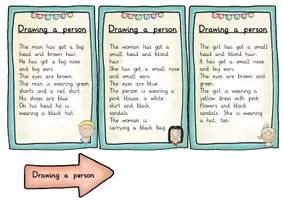 Drawing a person
The man has got a big
head and brown hair.
He has got a big nose
and big ears.
The eyes are brown.
The man is wearing green
shorts and a red shirt.
His shoes are blue.
On his head he is
wearing a black hat.
Drawing a person
The woman has got a
small head and blond
hair.
She has got a small nose
and small ears.
The eyes are blue.
The person is wearing a
pink blouse, a white
skirt and black
sandals.
The woman is
carrying a black bag.
Drawing a person
The girl has got a small
head and blond hair.
It has got a small nose
and big ears.
The eyes are brown and
green.
The girl is wearing a
yellow dress with pink
flowers and black
sandals. She is wearing
a hat, too.
Drawing a person